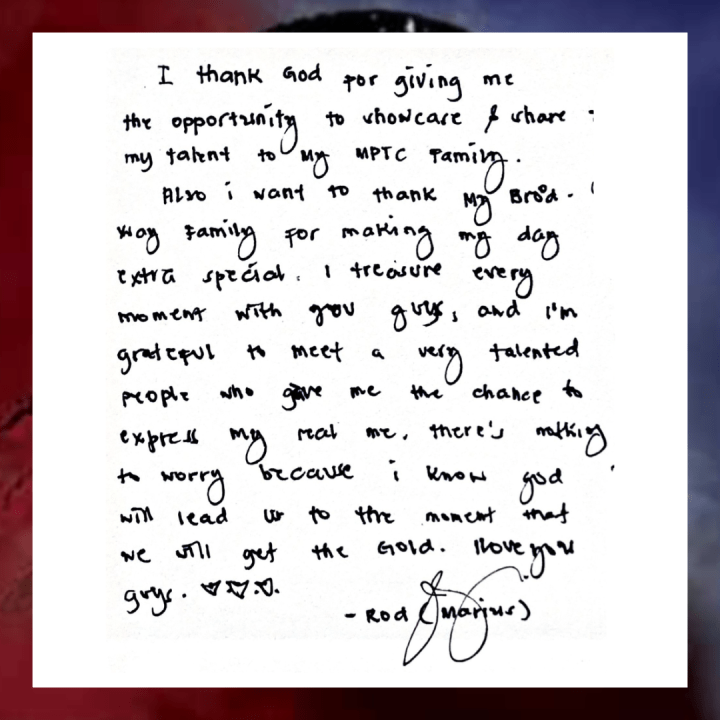 I thank God for giving me
the opportunity to showcase & share
my talent to My MPTC Family.
Also i want to thank My Broad-
way Family for making my day
extra special. I treasure every
moment with you guys, and i'm
grateful to meet a very talented
people who gave me the chance to
express my real me. there's nothing
to worry because i know god
will lead us to the moment that
we will get the Gold. Ilove you
guys. ♡♡♡.
- Rod (Marius)